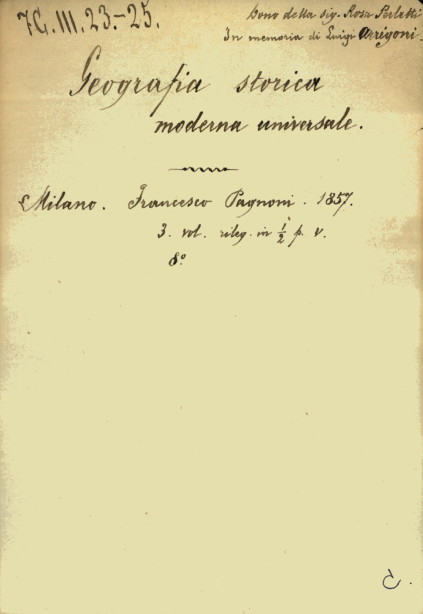 7G.III.23.-25.
Dono della sig. Rosa Perletti
In memoria di Luigi Arrigoni.
Geografia storica
moderna universale.
Milano. Francesco Pagnoni. 1857.
3. vol. rileg. in ½ p. v.
8.°
C.